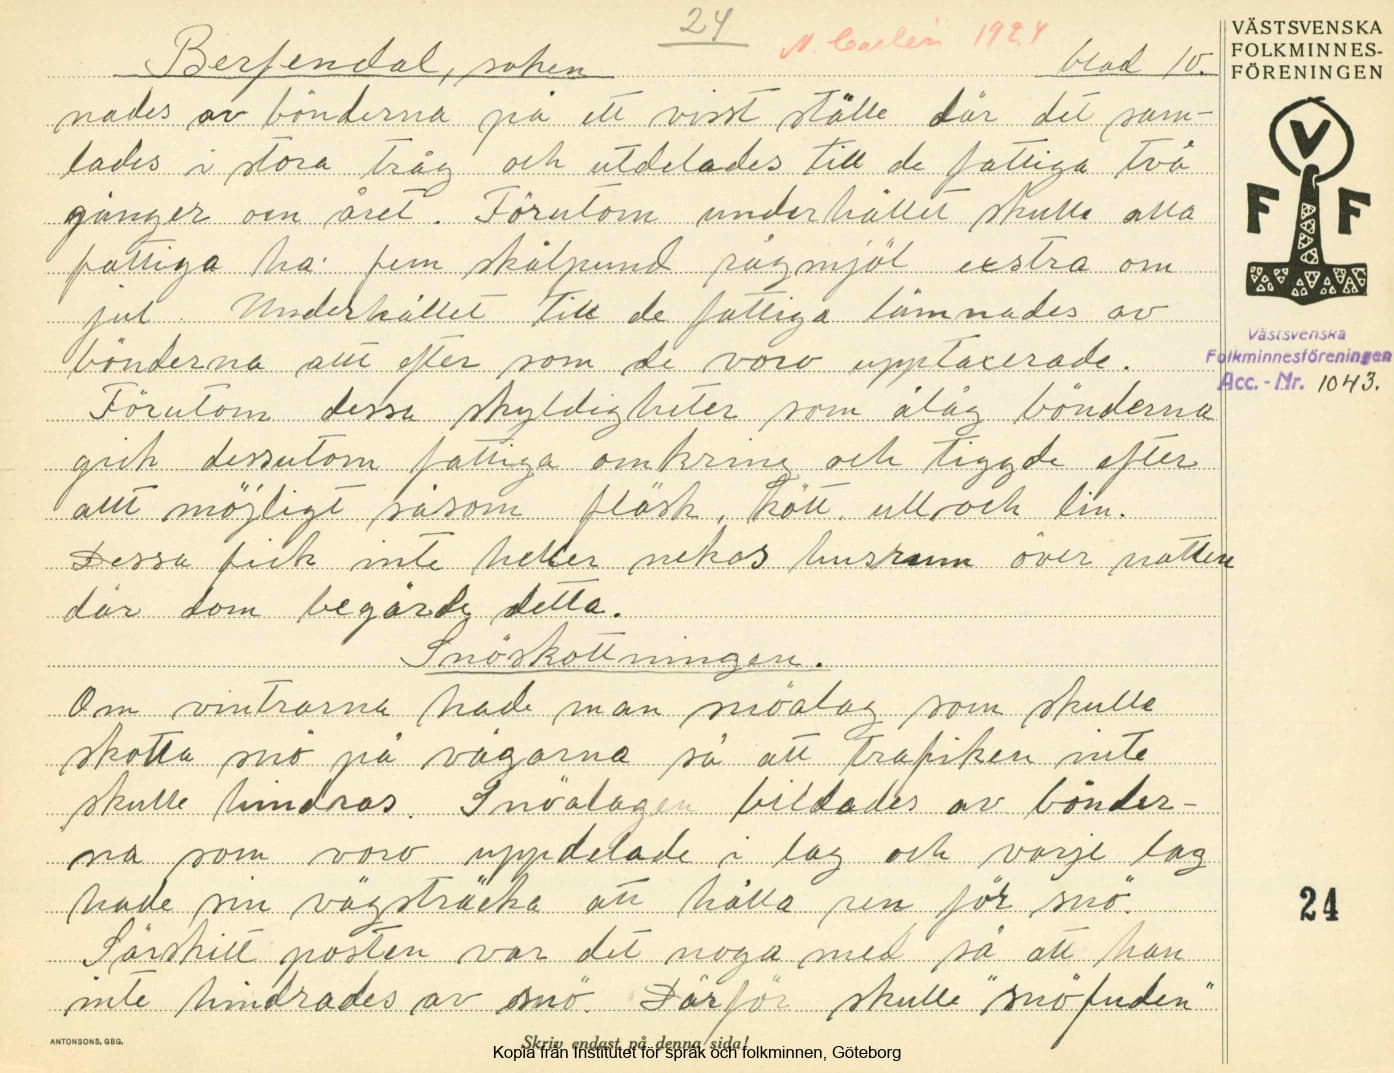 24
N. Carlén 1924
Berfendal, soken
blad 10.
VÄSTSVENSKA
FOLKMINNES-
FÖRENINGEN
V
F F
Västsvenska
Folkminnesföreningen
Acc.-Nr. 1043.
nades av bönderna på ett visst ställe där det sam-
lades i stora tråg och utdelades till de fattiga två
gånger om året. Förutom underhållet skulle alla
fattiga ha fem skålpund rågmjöl exstra om
jul. Underhållet till de fattiga lämnades av
bönderna allt efter som de voro upptaxerade.
Förutom dessa skyldigheter som ålåg bönderna
gick dessutom fattiga omkring och tiggde efter
allt möjligt såsom fläsk, kött, ull och lin.
Dessa fick inte heller nekas husrum över natten
där dom begärde detta.
Snöskottningen.
Om vintrarna hade man snöalag som skulle
skotta snö på vägarna så att trafiken inte
skulle hindras. Snöalagen bildades av bönder-
na som voro uppdelade i lag och varje lag
hade sin vägsträcka att hålla ren för snö.
Särskilt posten var det noga med så att han
inte hindrades av snö. Därför skulle "snöfuden"
24
ANTONSONS, GBG.
Skriv endast på denna sida!
Kopia från Institutet för språk och folkminnen, Göteborg